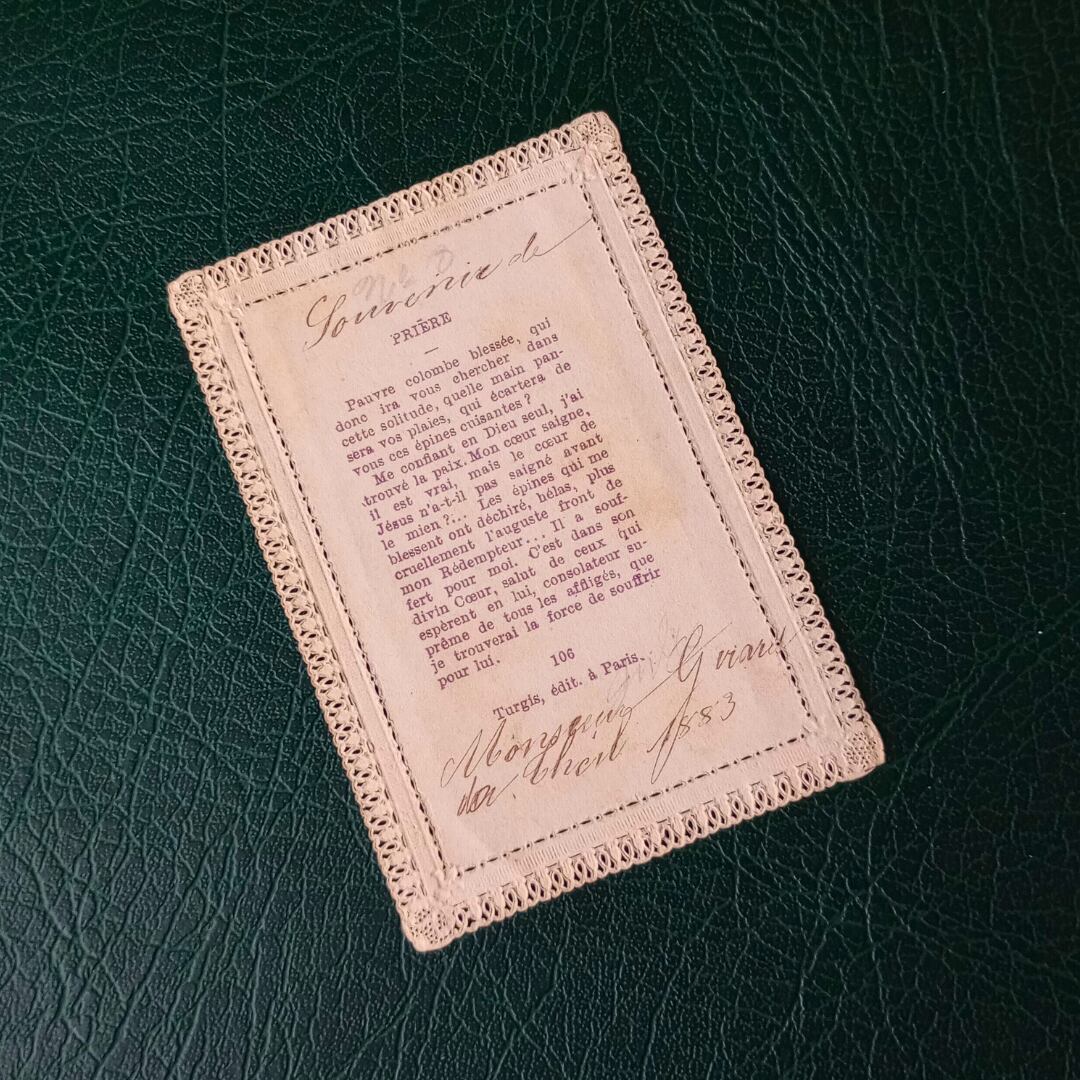 Souvenir de
PRIÈRE
Pauvre colombe blessée, qui
donc ira vous chercher dans
cette solitude, quelle main pan-
sera vos plaies, qui écartera de
vous ces épines cuisantes ?
Me confiant en Dieu seul, j'ai
trouvé la paix. Mon cœur saigne,
il est vrai, mais le cœur de
Jésus n'a-t-il pas saigné avant
le mien ?... Les épines qui me
blessent ont déchiré, hélas, plus
cruellement l'auguste front de
mon Rédempteur... Il a souf-
fert pour moi. C'est dans son
divin Cœur, salut de ceux qui
espèrent en lui, consolateur su-
prême de tous les affligés, que
je trouverai la force de souffrir
pour lui.
106
Turgis, édit. à Paris.
Monsieur Gviard
1883